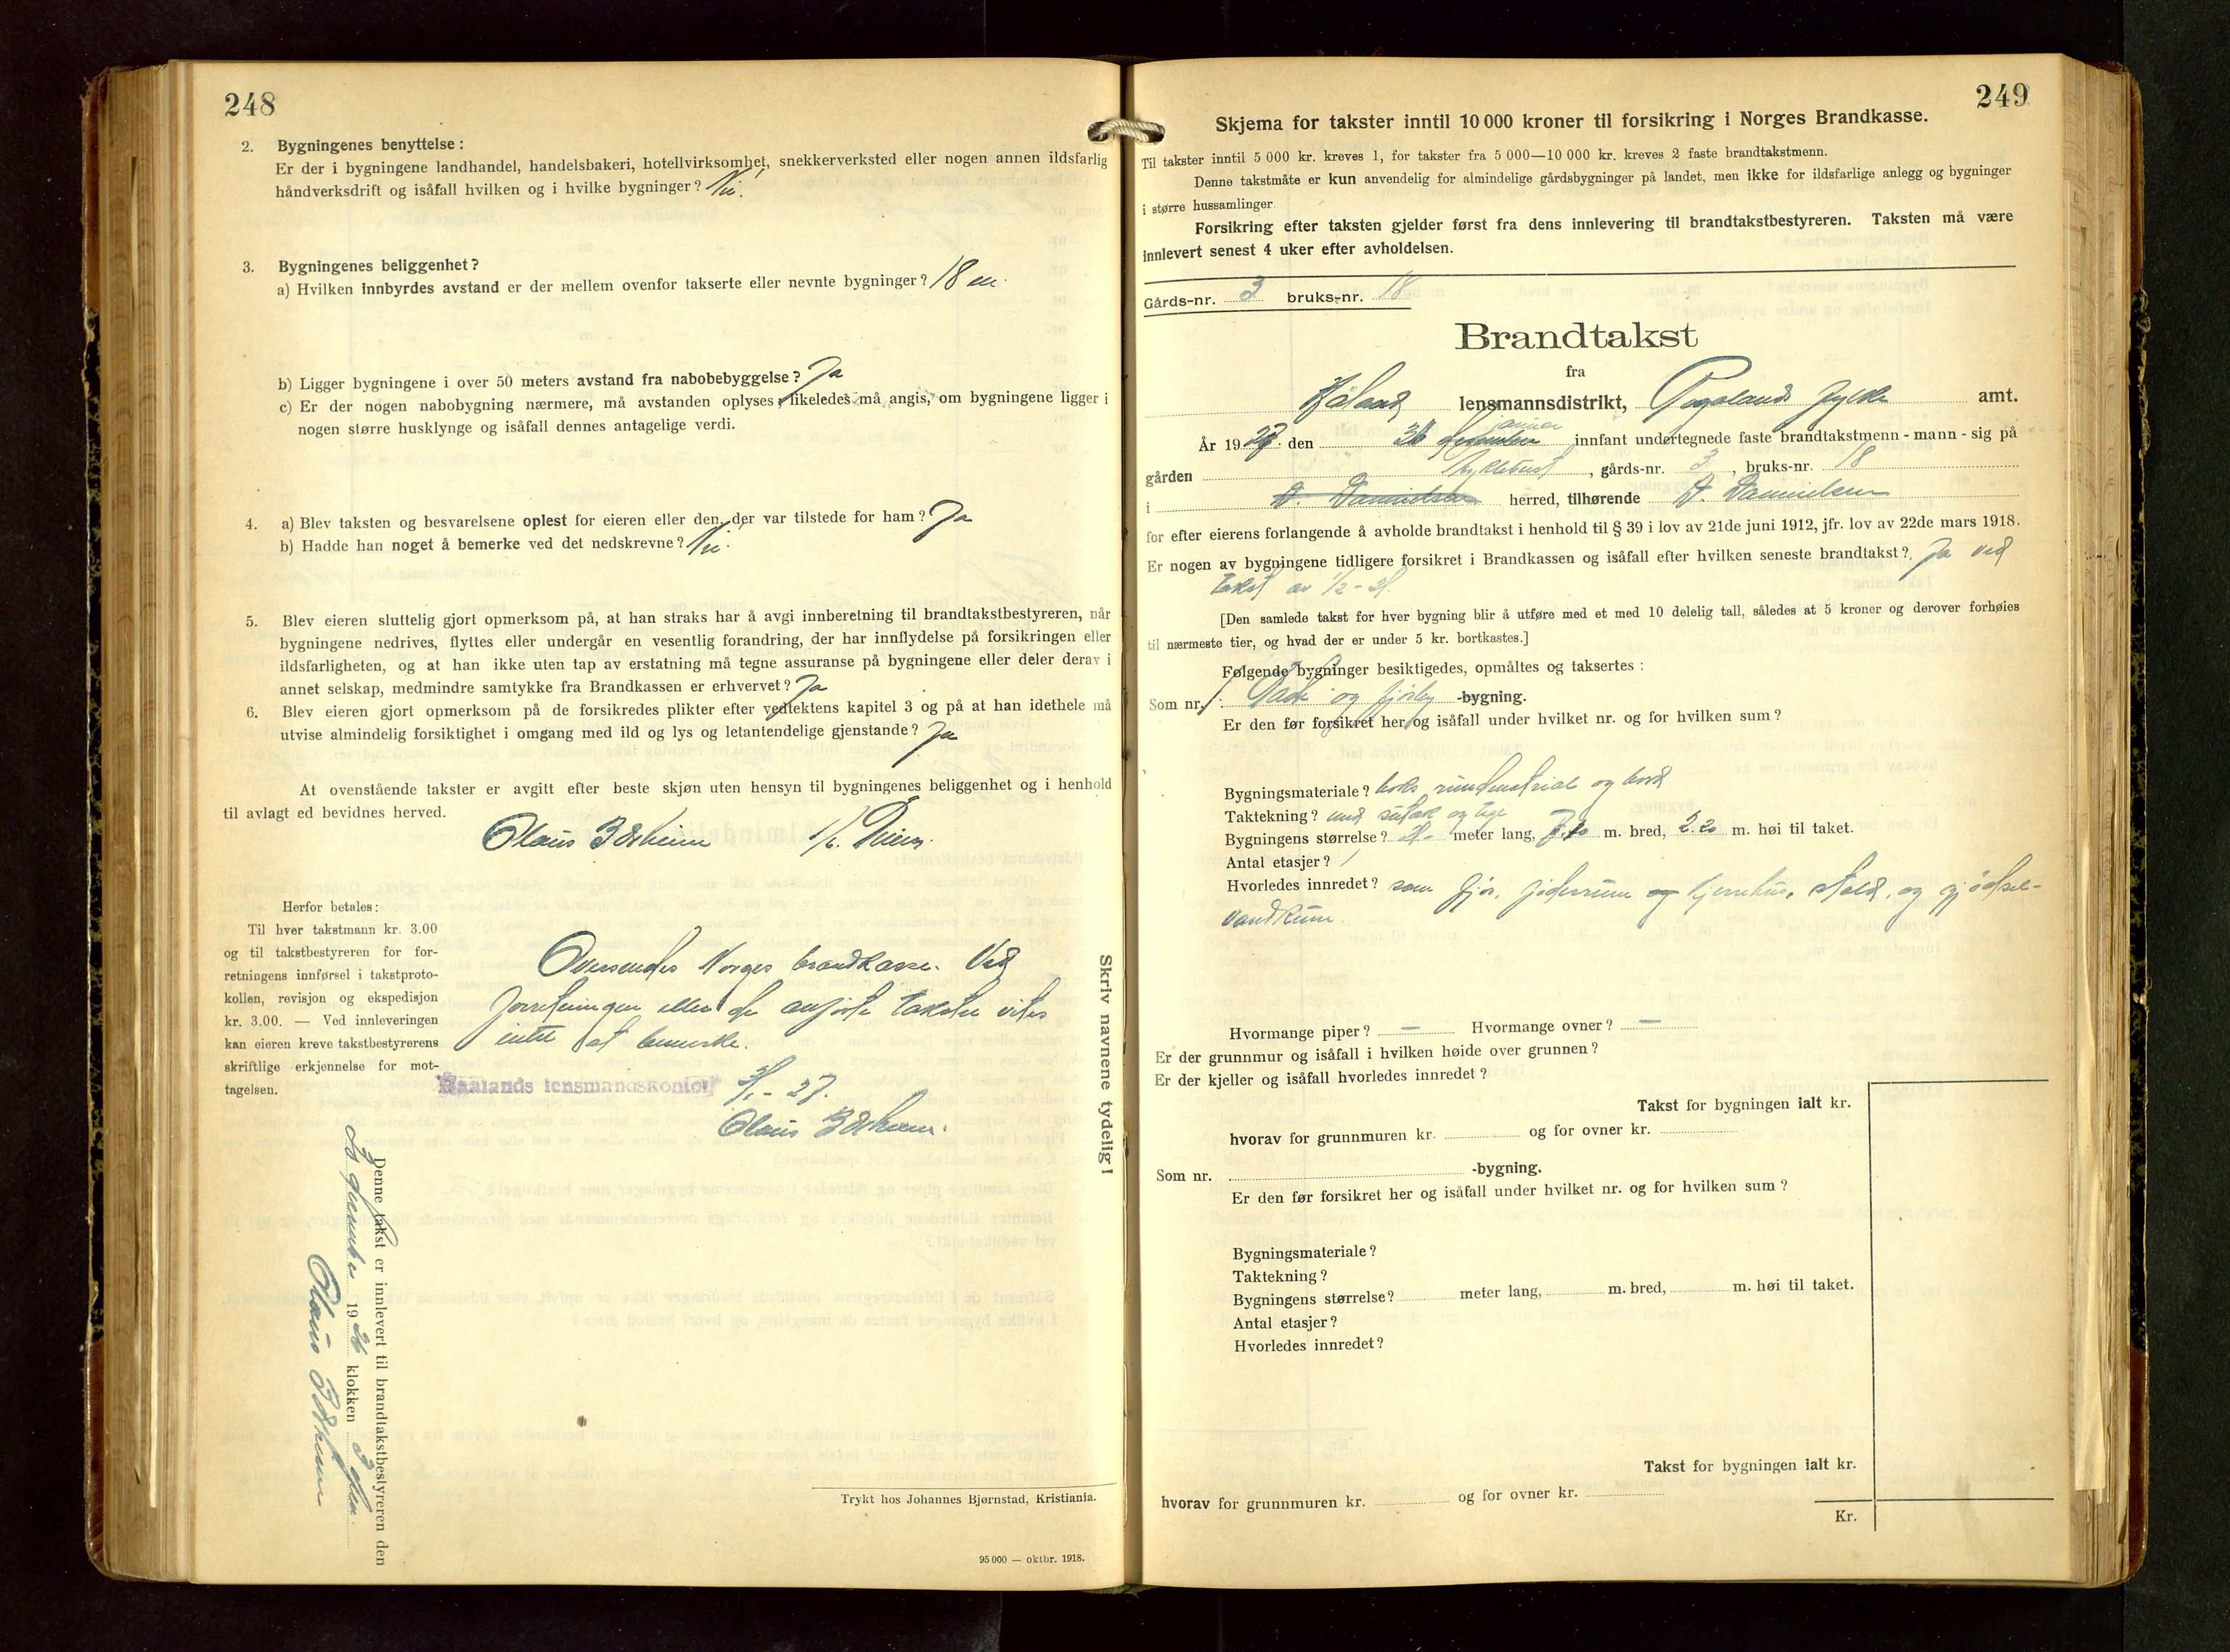 248
2. Bygningenes benyttelse :
Er der i bygningene landhandel, handelsbakeri, hotellvirksomhet, snekkerverksted eller nogen annen ildsfarlig
håndverksdrift og isåfall hvilken og i hvilke bygninger? Nei.
3. Bygningenes beliggenhet?
a) Hvilken innbyrdes avstand er der mellem ovenfor takserte eller nevnte bygninger? 18 m.
b) Ligger bygningene i over 50 meters avstand fra nabobebyggelse? Ja
c) Er der nogen nabobygning nærmere, må avstanden oplyses, likeledes må angis, om bygningene ligger i
nogen større husklynge og isåfall dennes antagelige verdi.
4. a) Blev taksten og besvarelsene oplest for eieren eller den, der var tilstede for ham? Ja
b) Hadde han noget å bemerke ved det nedskrevne? Nei.
5. Blev eieren sluttelig gjort opmerksom på, at han straks har å avgi innberetning til brandtakstbestyreren, når
bygningene nedrives, flyttes eller undergår en vesentlig forandring, der har innflydelse på forsikringen eller
ildsfarligheten, og at han ikke uten tap av erstatning må tegne assuranse på bygningene eller deler derav i
annet selskap, medmindre samtykke fra Brandkassen er erhvervet? Ja
6. Blev eieren gjort opmerksom på de forsikredes plikter efter vedtektens kapitel 3 og på at han idethele må
utvise almindelig forsiktighet i omgang med ild og lys og letantendelige gjenstande? Ja
At ovenstående takster er avgitt efter beste skjøn uten hensyn til bygningenes beliggenhet og i henhold
til avlagt ed bevidnes herved.
Olaus
Herfor betales:
Til hver takstmann kr. 3.00
og til takstbestyreren for for-
retningens innførsel i takstproto-
kollen, revisjon og ekspedisjon
kr. 3.00. — Ved innleveringen
kan eieren kreve takstbestyrerens
skriftlige erkjennelse for mot-
tagelsen.
Oversendes Norges brandkasse. Ved
forretningen eller de anførte takster vites
intet at bemerke.
Haalands lensmandskontor 3/1 - 27.
Olaus
Skriv navnene tydelig!
Denne takst er innlevert til brandtakstbestyreren den
1926 klokken 3
Olaus
Trykt hos Johannes Bjørnstad, Kristiania.
95 000 — oktbr. 1918.
249
Skjema for takster inntil 10 000 kroner til forsikring i Norges Brandkasse.
Til takster inntil 5 000 kr. kreves 1, for takster fra 5 000—10 000 kr. kreves 2 faste brandtakstmenn.
Denne takstmåte er kun anvendelig for almindelige gårdsbygninger på landet, men ikke for ildsfarlige anlegg og bygninger
i større hussamlinger.
Forsikring efter taksten gjelder først fra dens innlevering til brandtakstbestyreren. Taksten må være
innlevert senest 4 uker efter avholdelsen.
Gårds-nr. 3 bruks-nr. 18
Brandtakst
fra
Håland lensmannsdistrikt, Rogalands fylke amt.
januar
År 1927 den 3 innfant undertegnede faste brandtakstmenn - mann - sig på
gården Myklebust, gårds-nr. 3, bruks-nr. 18
i D. Danielsen herred, tilhørende D. Danielsen
for efter eierens forlangende å avholde brandtakst i henhold til § 39 i lov av 21de juni 1912, jfr. lov av 22de mars 1918.
Er nogen av bygningene tidligere forsikret i Brandkassen og isåfall efter hvilken seneste brandtakst? Ja ved
takst av 1/2 - 21.
[Den samlede takst for hver bygning blir å utføre med et med 10 delelig tall, således at 5 kroner og derover forhøies
til nærmeste tier, og hvad der er under 5 kr. bortkastes.]
Følgende bygninger besiktigedes, opmåltes og taksertes :
Som nr. 1. og -bygning.
Er den før forsikret her og isåfall under hvilket nr. og for hvilken sum?
Bygningsmateriale? og bord
Taktekning? med sutak og
Bygningens størrelse? meter lang, m. bred, 2.20 m. høi til taket.
Antal etasjer? 1
Hvorledes innredet? som fjøs, foderrum og kjerrehus, stald, og gjødsel-
vandkum.
Hvormange piper? — Hvormange ovner? —
Er der grunnmur og isåfall i hvilken høide over grunnen?
Er der kjeller og isåfall hvorledes innredet?
Takst for bygningen ialt kr.
hvorav for grunnmuren kr. og for ovner kr.
Som nr. -bygning.
Er den før forsikret her og isåfall under hvilket nr. og for hvilken sum?
Bygningsmateriale?
Taktekning?
Bygningens størrelse? meter lang, m. bred, m. høi til taket.
Antal etasjer?
Hvorledes innredet?
Takst for bygningen ialt kr.
hvorav for grunnmuren kr. og for ovner kr.
Kr.